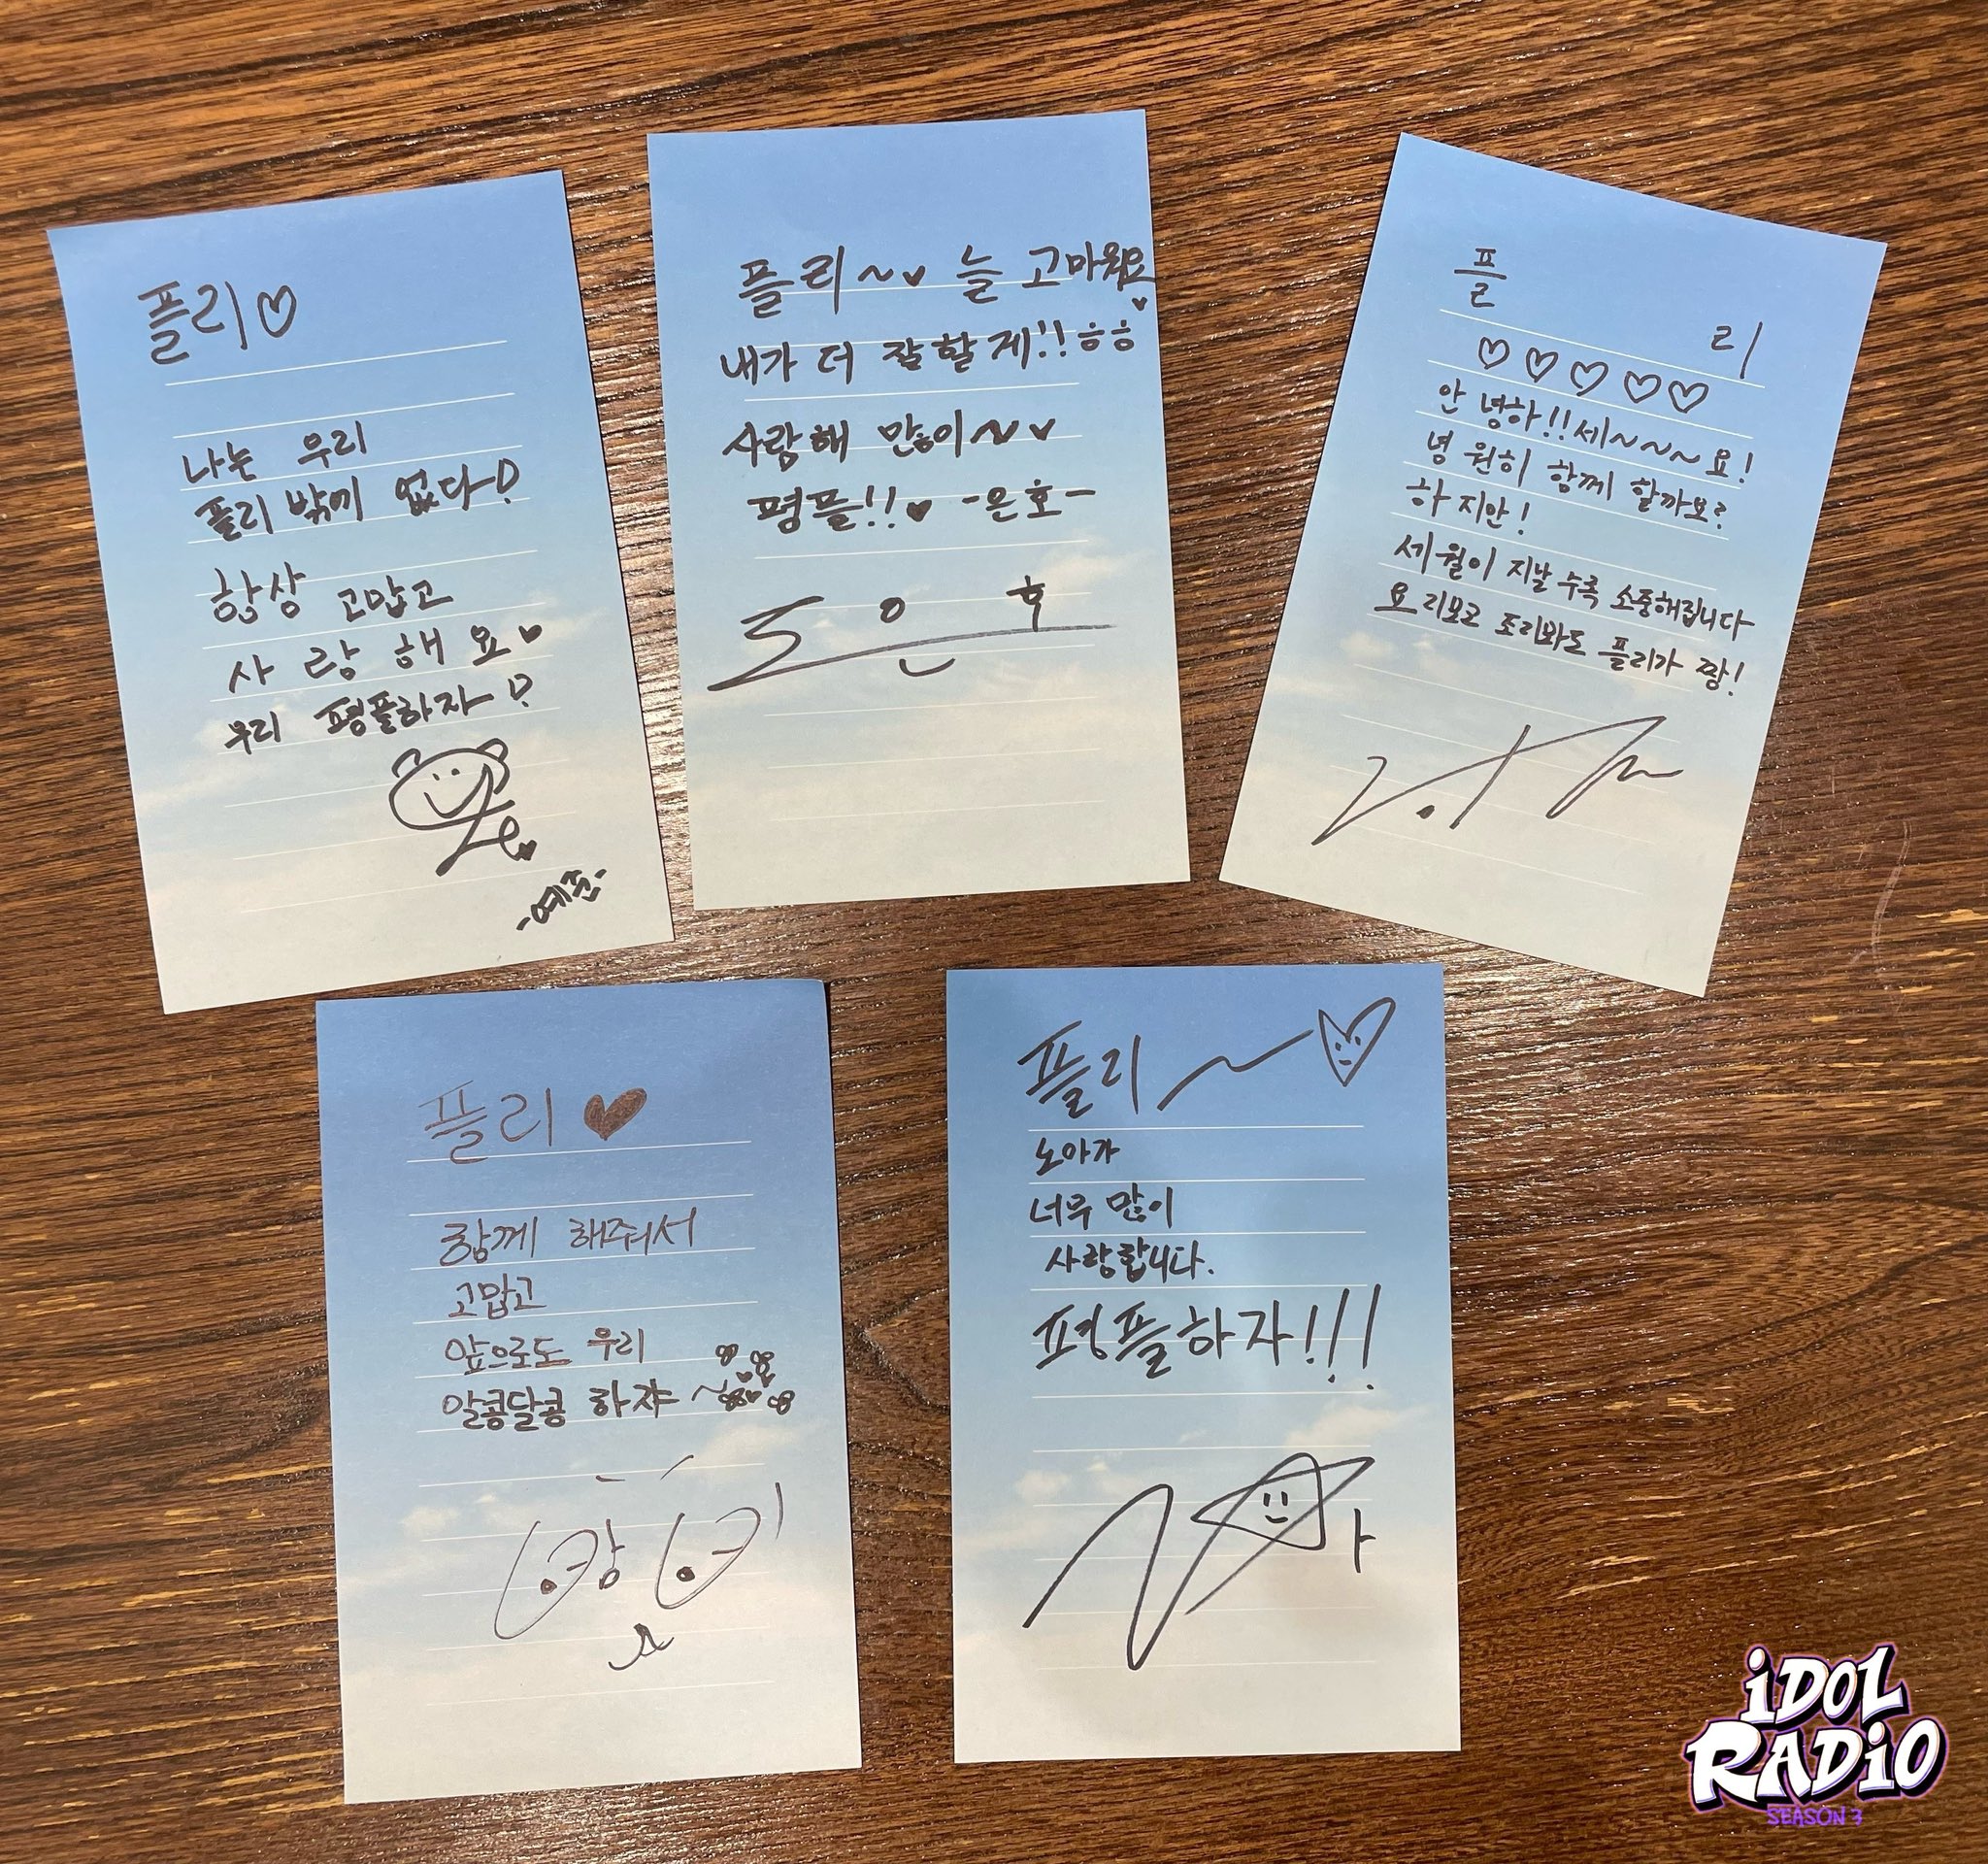 플리♡
나는 우리
플리밖에 없다♡
항상 고맙고
사랑해요♥
우리 평플하자♡
-예준-
플리~♥ 늘 고마워요♥
내가 더 잘할게!! ㅎㅎ
사랑해 많이~♥
평플!!♥ -은호-
은호
플
리
♡♡♡♡♡
안녕하!!세~~~요!
녕원히 함께 할까요?
하지만!
세월이 지날수록 소중해집니다
요리보고 조리봐도 플리가 짱!
플리♥
함께 해줘서
고맙고
앞으로도 우리
알콩달콩 하쟈~
플리~♡
노아가
너무 많이
사랑합니다.
평플하자!!!
iDOL
RADiO
SEASON 3